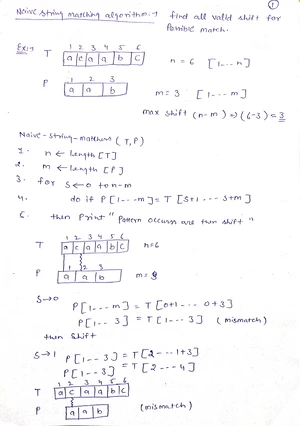 ①
Naive string matching algorithm → find all valid shift for
Possible match.
Ex:→ T 1 2 3 4 5 6
a c a a b c n = 6 [1---n]
P 1 2 3
a a b m = 3 [1---m]
max shift (n-m) ⇒ (6-3) = 3
Naive-string-matchers (T, P)
1. n ← length [T]
2. m ← length [P]
3. for S ← 0 to n-m
4. do if P[1---m] = T[S+1---S+m]
then Print "Pattern occurs
shift"
T 1 2 3 4 5 6
a c a a b c n=6
P 1 2 3
a a b
S→0
P[1---m] = T[0+1---0+3]
P[1--3] = T[1---3] (mismatch)
then shift
S→1 P[1--3] = T[2---1+3]
P[1--3] = T[2---4]
1 2 3 4 5 6
T a c a a b c
P a a b (mismatch)